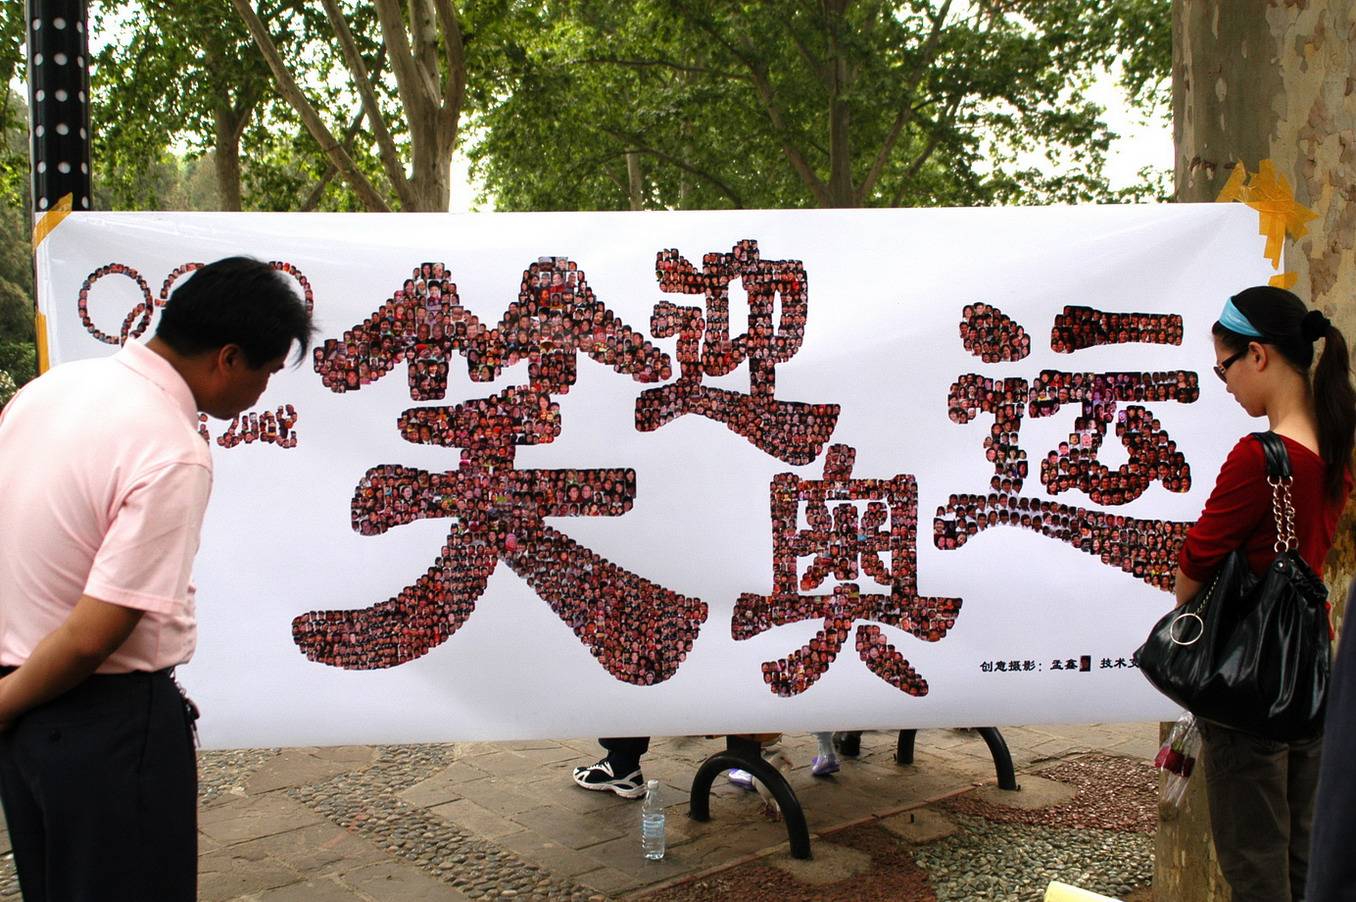 笑迎奥运
创意摄影：孟鑫 技术支